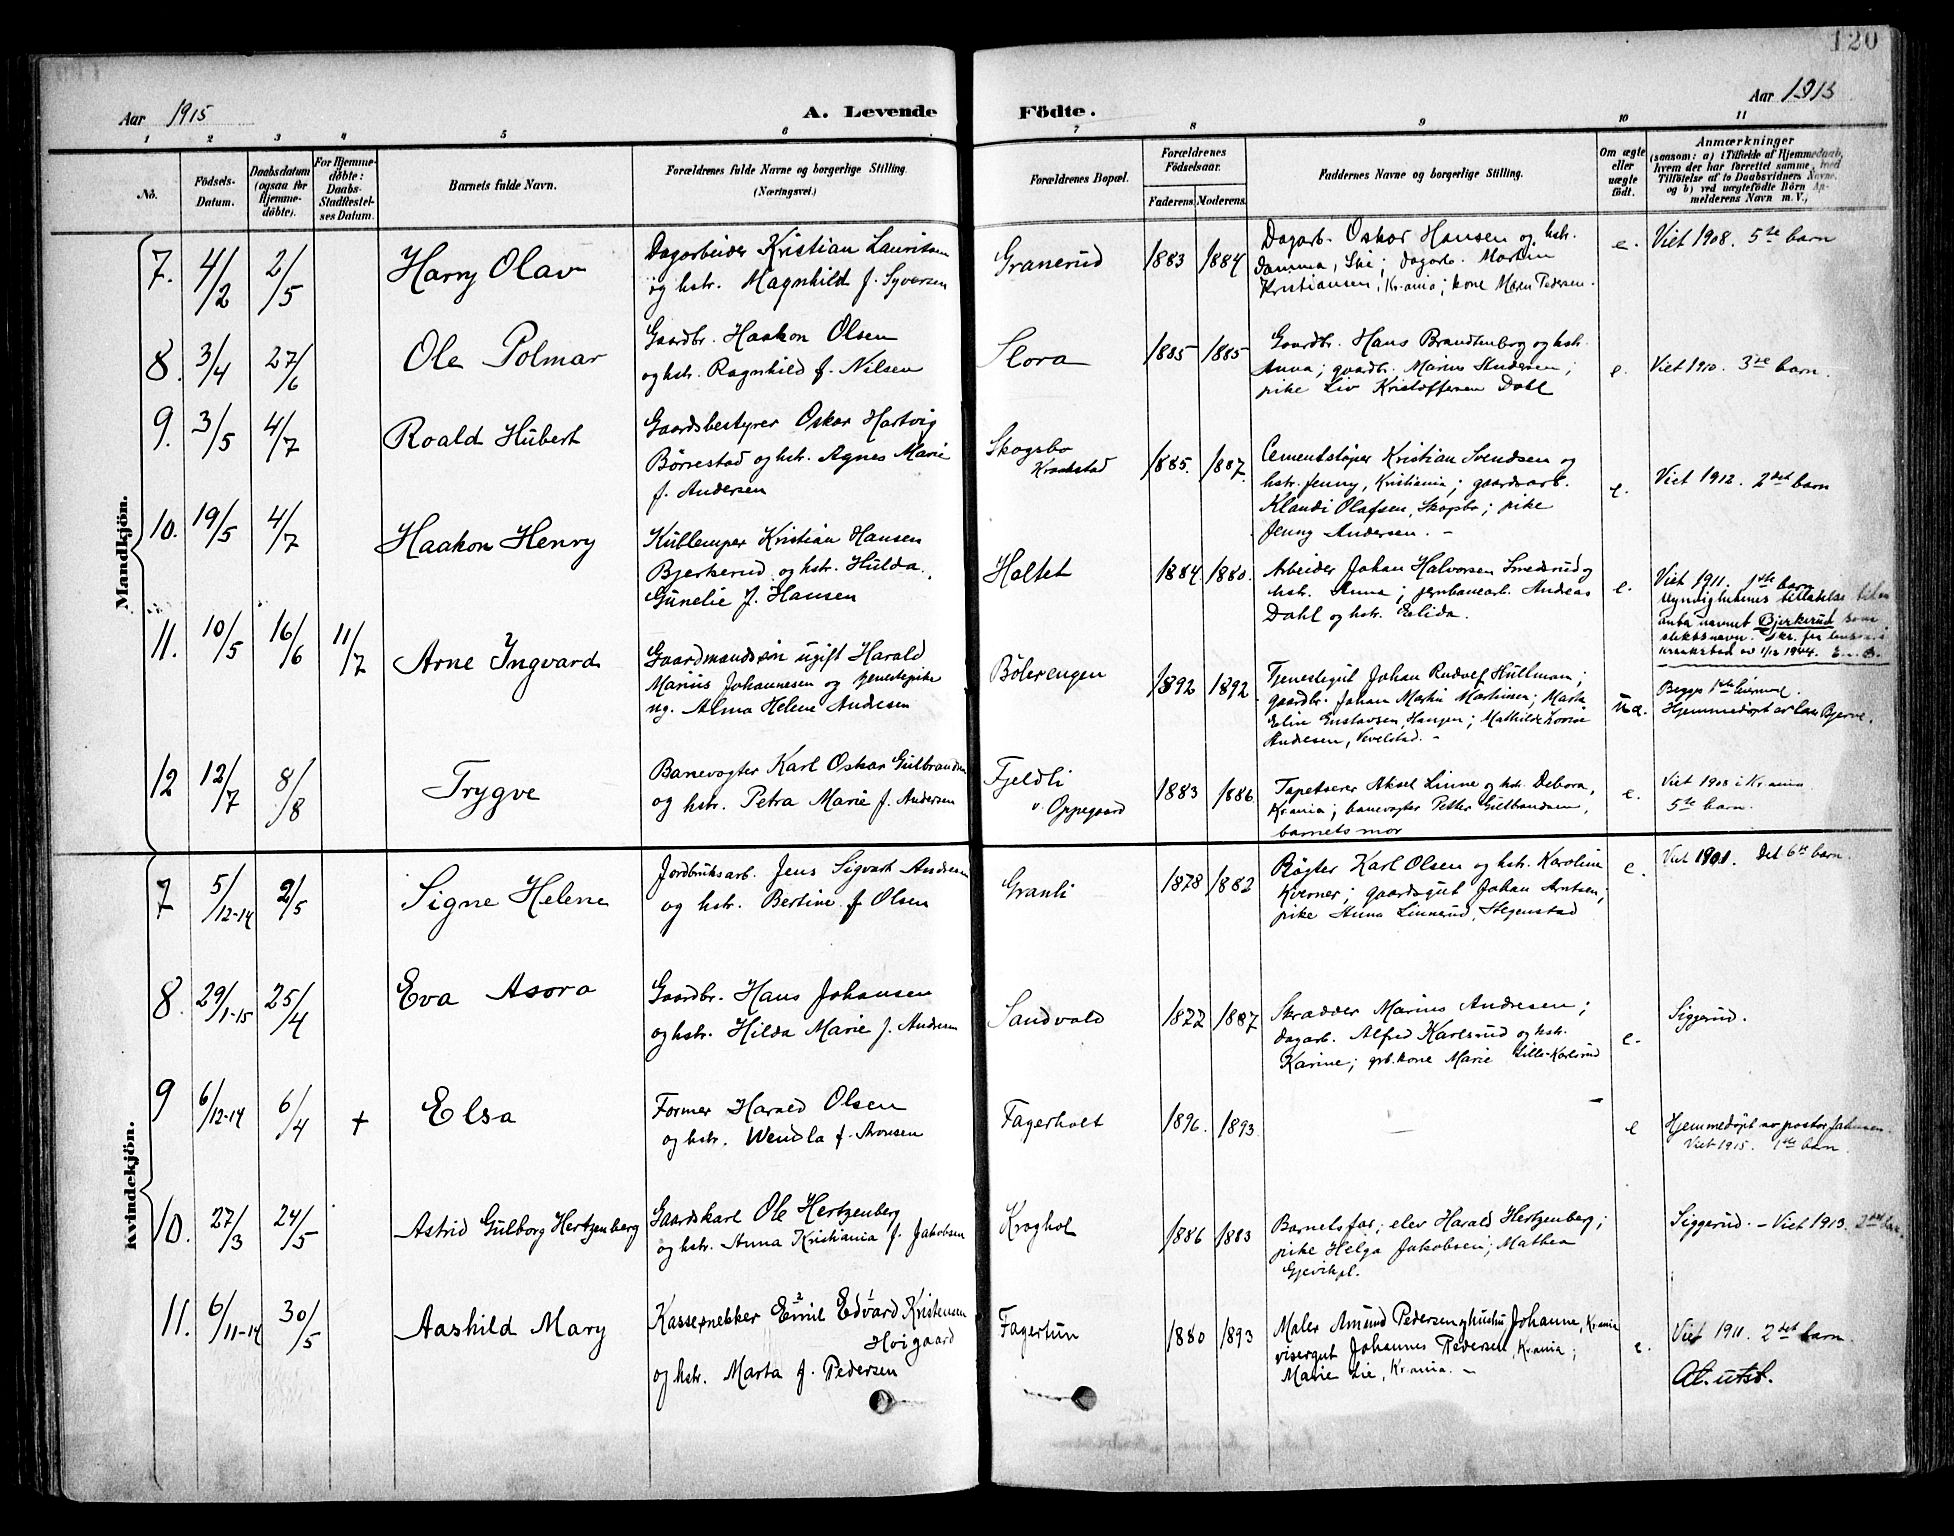 120
Aar 1915
A. Levende
Födte.
Aar 1915
1 2 3 4 5 6 7 8 9 10 11
No.
Födsels-
Datum.
Daabsdatum
(ogsaa for
Hjemme-
döbte).
For Hjemme-
döbte:
Daabs-
Stadfæstel-
ses Datum.
Barnets fulde Navn.
Forældrenes fulde Navne og borgerlige Stilling
(Næringsvei.)
Forældrenes Bopæl.
Forældrenes
Födselsaar.
Faderens. Moderens.
Faddernes Navne og borgerlige Stilling.
Om ægte
eller
uægte
födt.
Anmærkninger
(saasom: a) i Tilfælde af Hjemmedaab,
hvem der har forrettet samme, med
Tilföielse af to Daabsvidners Navne,
og b) ved uægtefödte Börn An-
melderens Navn m. V.)
Mandkjön.
7. 4/2 2/5
Harry Olav
Dagarbeider Kristian Lauritsen
og hstr. Magnhild f. Syversen
Granerud
1883 1884
Dagarb. Oskar Hansen og hstr.
Damma, Ski; dagarb. Morten
Kristiansen, Kr.ania; kone Maren Pedersen.
e.
Viet 1908. 5te barn
8. 3/4 27/6
Ole Polmar
Gaardbr. Haakon Olsen
og hstr. Ragnhild f. Nilsen
Slora
1885 1885
Gaardbr. Hans Brandtenborg og hstr.
Anna; gaardbr. Marius Andersen;
pike Liv Kristoffersen Dahl
e.
Viet 1910. 3die barn.
9. 3/5 4/7
Roald Hubert
Gaardsbestyrer Oskar Hartvig
Börrestad og hstr. Agnes Marie
f. Andersen
Skogsbo
Kraakstad
1885. 1887.
Cementstöper Kristian Svendsen og
hstr. Jenny, Kristiania; gaardsarb.
Klaudi Olafsen, Skogsbo; pike
Jenny Andersen. -
e.
Viet 1912. 2det barn
10. 19/5 4/7
Haakon Henry
Kullemper Kristian Hansen
Bjerkerud og hstr. Hulda
Gunelie f. Hansen
Holtet
1884 1880.
Arbeider Johan Halvorsen Smederud og
hstr. Anna; jernbanearb. Andreas
Dahl og hstr. Elida.
e.
Viet 1911. 1ste barn
Myndighetenes tillatelse til
anta navnet Bjerkerud som
slektsnavn.
11. 10/5 16/6 11/7
Arne Ingvard
Gaardmandssön ugift Harald
Marius Johannesen og tjenestepike
ug. Alma Helene Andresen
Bölerengen
1892 1892
Tjenestegut Johan Rudolf Hullman;
gaardbr. Johan Martin Martinsen; Marta
Elin Gustavsen, Haugen; Mathilde
Andresen, Vevelstad. -
u.e.
Begges 1ste
Hjemmedöpt av Bjerve.
12 12/7 8/8
Trygve
Banevogter Karl Oskar Gulbrandsen
og hstr. Petra Marie f. Andersen
Fjeldli
v. Oppegaard
1883 1886
Tapetserer Aksel Linne og hstr. Debora,
Kr.ania; banevogter Petter Gulbrandsen,
barnets mor
e.
Viet 1908 i Kr.ania
5te barn.
Kvindekjön.
7 5/12-14 2/5
Signe Helene
Jordbruksarb. Jens Sigvart Andresen
og hstr. Bertine f Olsen
Granli
1878 1882
Rögter Karl Olsen og hstr. Karoline
Kverner; gaardsgut Johan Arntsen;
pike Anna Linnerud, Hegenstad
e.
Viet 1901. Det 6te barn.
8. 29/1-15 25/4
Eva Asora
Gaardbr. Hans Johansen
og hstr. Hilda Marie f. Andresen
Sandvold
1877 1887
Skrædder Marius Andresen;
dagarb. Alfred Karlsrud og hstr.
Karine; grb.kone Marie Lille-Karlsrud
e.
Siggerud.
9 6/12-14 6/4 +
Elsa
Former Harald Olsen
og hstr. Wendla f. Aronsen
Fagerholt
1896. 1893
—
e
Hjemmedöpt av pastor Johnsen.
Viet 1915. 1ste barn
10. 27/3 24/5
Astrid Gulborg Hertzenberg
Gaardskarl Ole Hertzenberg
og hstr. Anna Kristiania f. Jakobsen
Kroghol
1886 1883
Barnets far; elev Harald Hertzenberg;
pike Helga Jakobsen; Mathea
Gjevikpl.
Siggerud. - Viet 1913. 2det barn
11. 6/11-14 30/5
Aashild Mary
Kassesnekker Emil Edvard Kristensen
Höigaard
og hstr. Marta f. Pedersen
Fagertun
1880 1893
Maler Amund Pedersen og hustru Johanne, Kr.ania
visergut Johannes Pedersen, Kr.ania;
Marie Lie, Kr.ania. -
e.
Viet 1911. 2det barn.
At. utst.